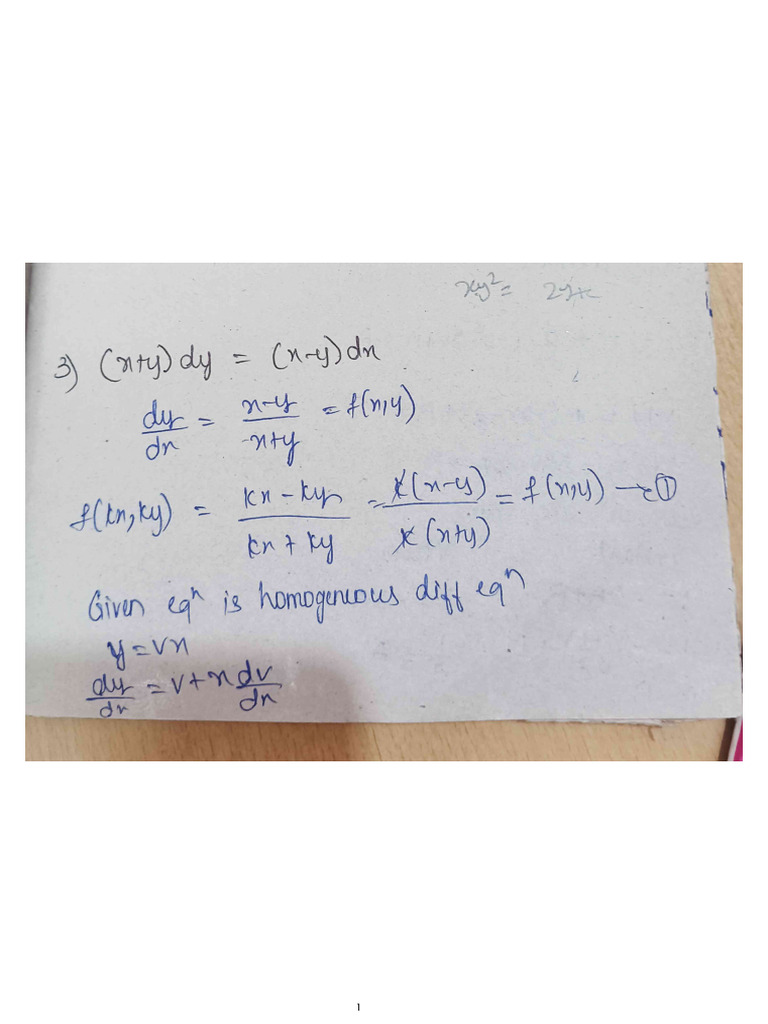 xy² = 2yx
3) (x+y) dy = (x-y) dx
dy/dx = x-y/x+y = f(x,y)
f(kx, ky) = kx - ky/kx + ky = k(x-y)/k(x+y) = f(x,y) → ①
Given eqⁿ is homogenious diff eqⁿ
y = vx
dy/dx = v + x dv/dx
1